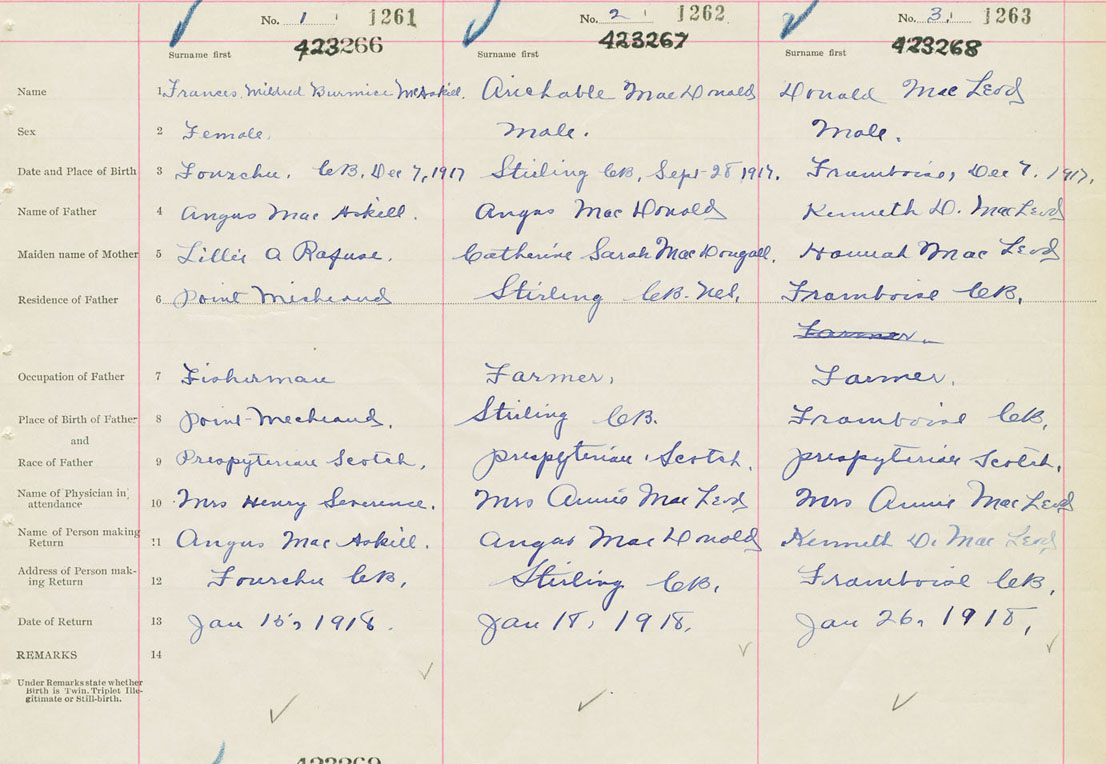 No. 1 1261 No. 2 1262 No. 3, 1263
423266 423267 423268
Surname first Surname first Surname first
Name 1 Frances Mildred Burmice McAskill. Arichable MacDonald Donald MacLeod
Sex 2 Female. Male. Male.
Date and Place of Birth 3 Fourchu. CB, Dec 7, 1917 Stirling CB, Sept 28 1917. Framboise, Dec 7. 1917.
Name of Father 4 Angus MacAskill. Angus MacDonald Kenneth D. MacLeod
Maiden name of Mother 5 Lillie A Rafuse. Catherine Sarah MacDougall. Hannah MacLeod
Residence of Father 6 Point Micheaud Stirling CB. Framboise CB.
Farmer.
Occupation of Father 7 Fisherman Farmer, Farmer.
Place of Birth of Father 8 Point Mecheaud. Stirling CB. Framboise CB,
and
Race of Father 9 Prespyterian Scotch, prespyterian Scotch. prespyterian Scotch.
Name of Physician in attendance 10 Mrs Henry Severence. Mrs Annie MacLeod Mrs Annie MacLeod
Name of Person making Return 11 Angus MacAskill. Angus MacDonald Kenneth D. MacLeod
Address of Person making Return 12 Fourchu CB, Stirling CB, Framboise CB,
Date of Return 13 Jan 15, 1918. Jan 18, 1918. Jan 26, 1918,
REMARKS 14
Under Remarks state whether
Birth is Twin, Triplet Ille-
gitimate or Still-birth.
423269